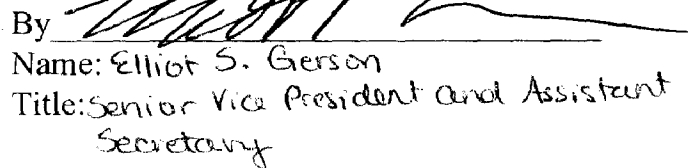 By
Name: Elliot S. Gerson
Title: Senior Vice President and Assistant
Secretary